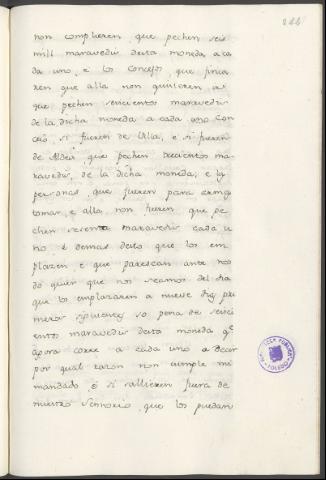 244
non complieren que pechen seis
mill maravedis desta moneda a ca
da uno, e los Concejos que finca
ren que alla non quisieren, a
que pechen seiscientos maravedis
de la dicha moneda a cada con
cejo, si fueren de Villa, e si fueren
de Aldea que pechen trecientos ma
ravedis, de la dicha moneda, e las
personas que fueren para armas
tomar, e alla non fueren que pe
chen sesenta maravedis cada u
no e demas desto que los em
plazen e que parescan ante nos
do quier que nos seamos del dia
que los emplazaren a nueve dias pri
meros siguientes so pena de seisci
entos maravedis desta moneda qe
agora corre a cada uno a decir
por qual razon non cumple mi
mandado, e si sallieren fuera de
nuestro Sennorio, que los puedan
BIBLIOTECA PUBLICA
TOLEDO